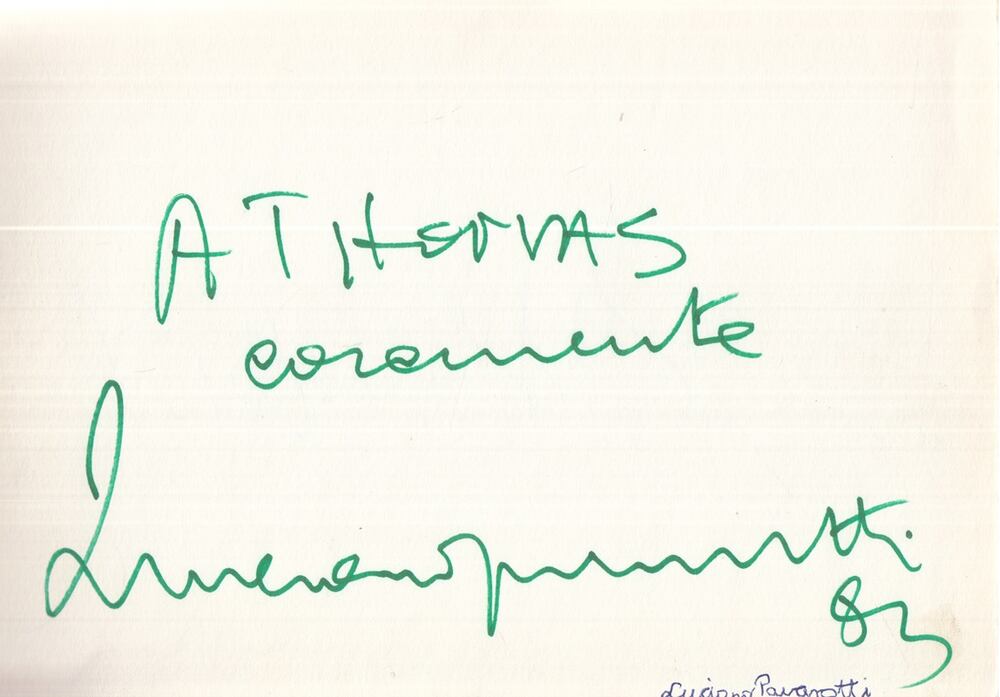 A THOMAS
caramente
Luciano Pavarotti
83
Luciano Pavarotti